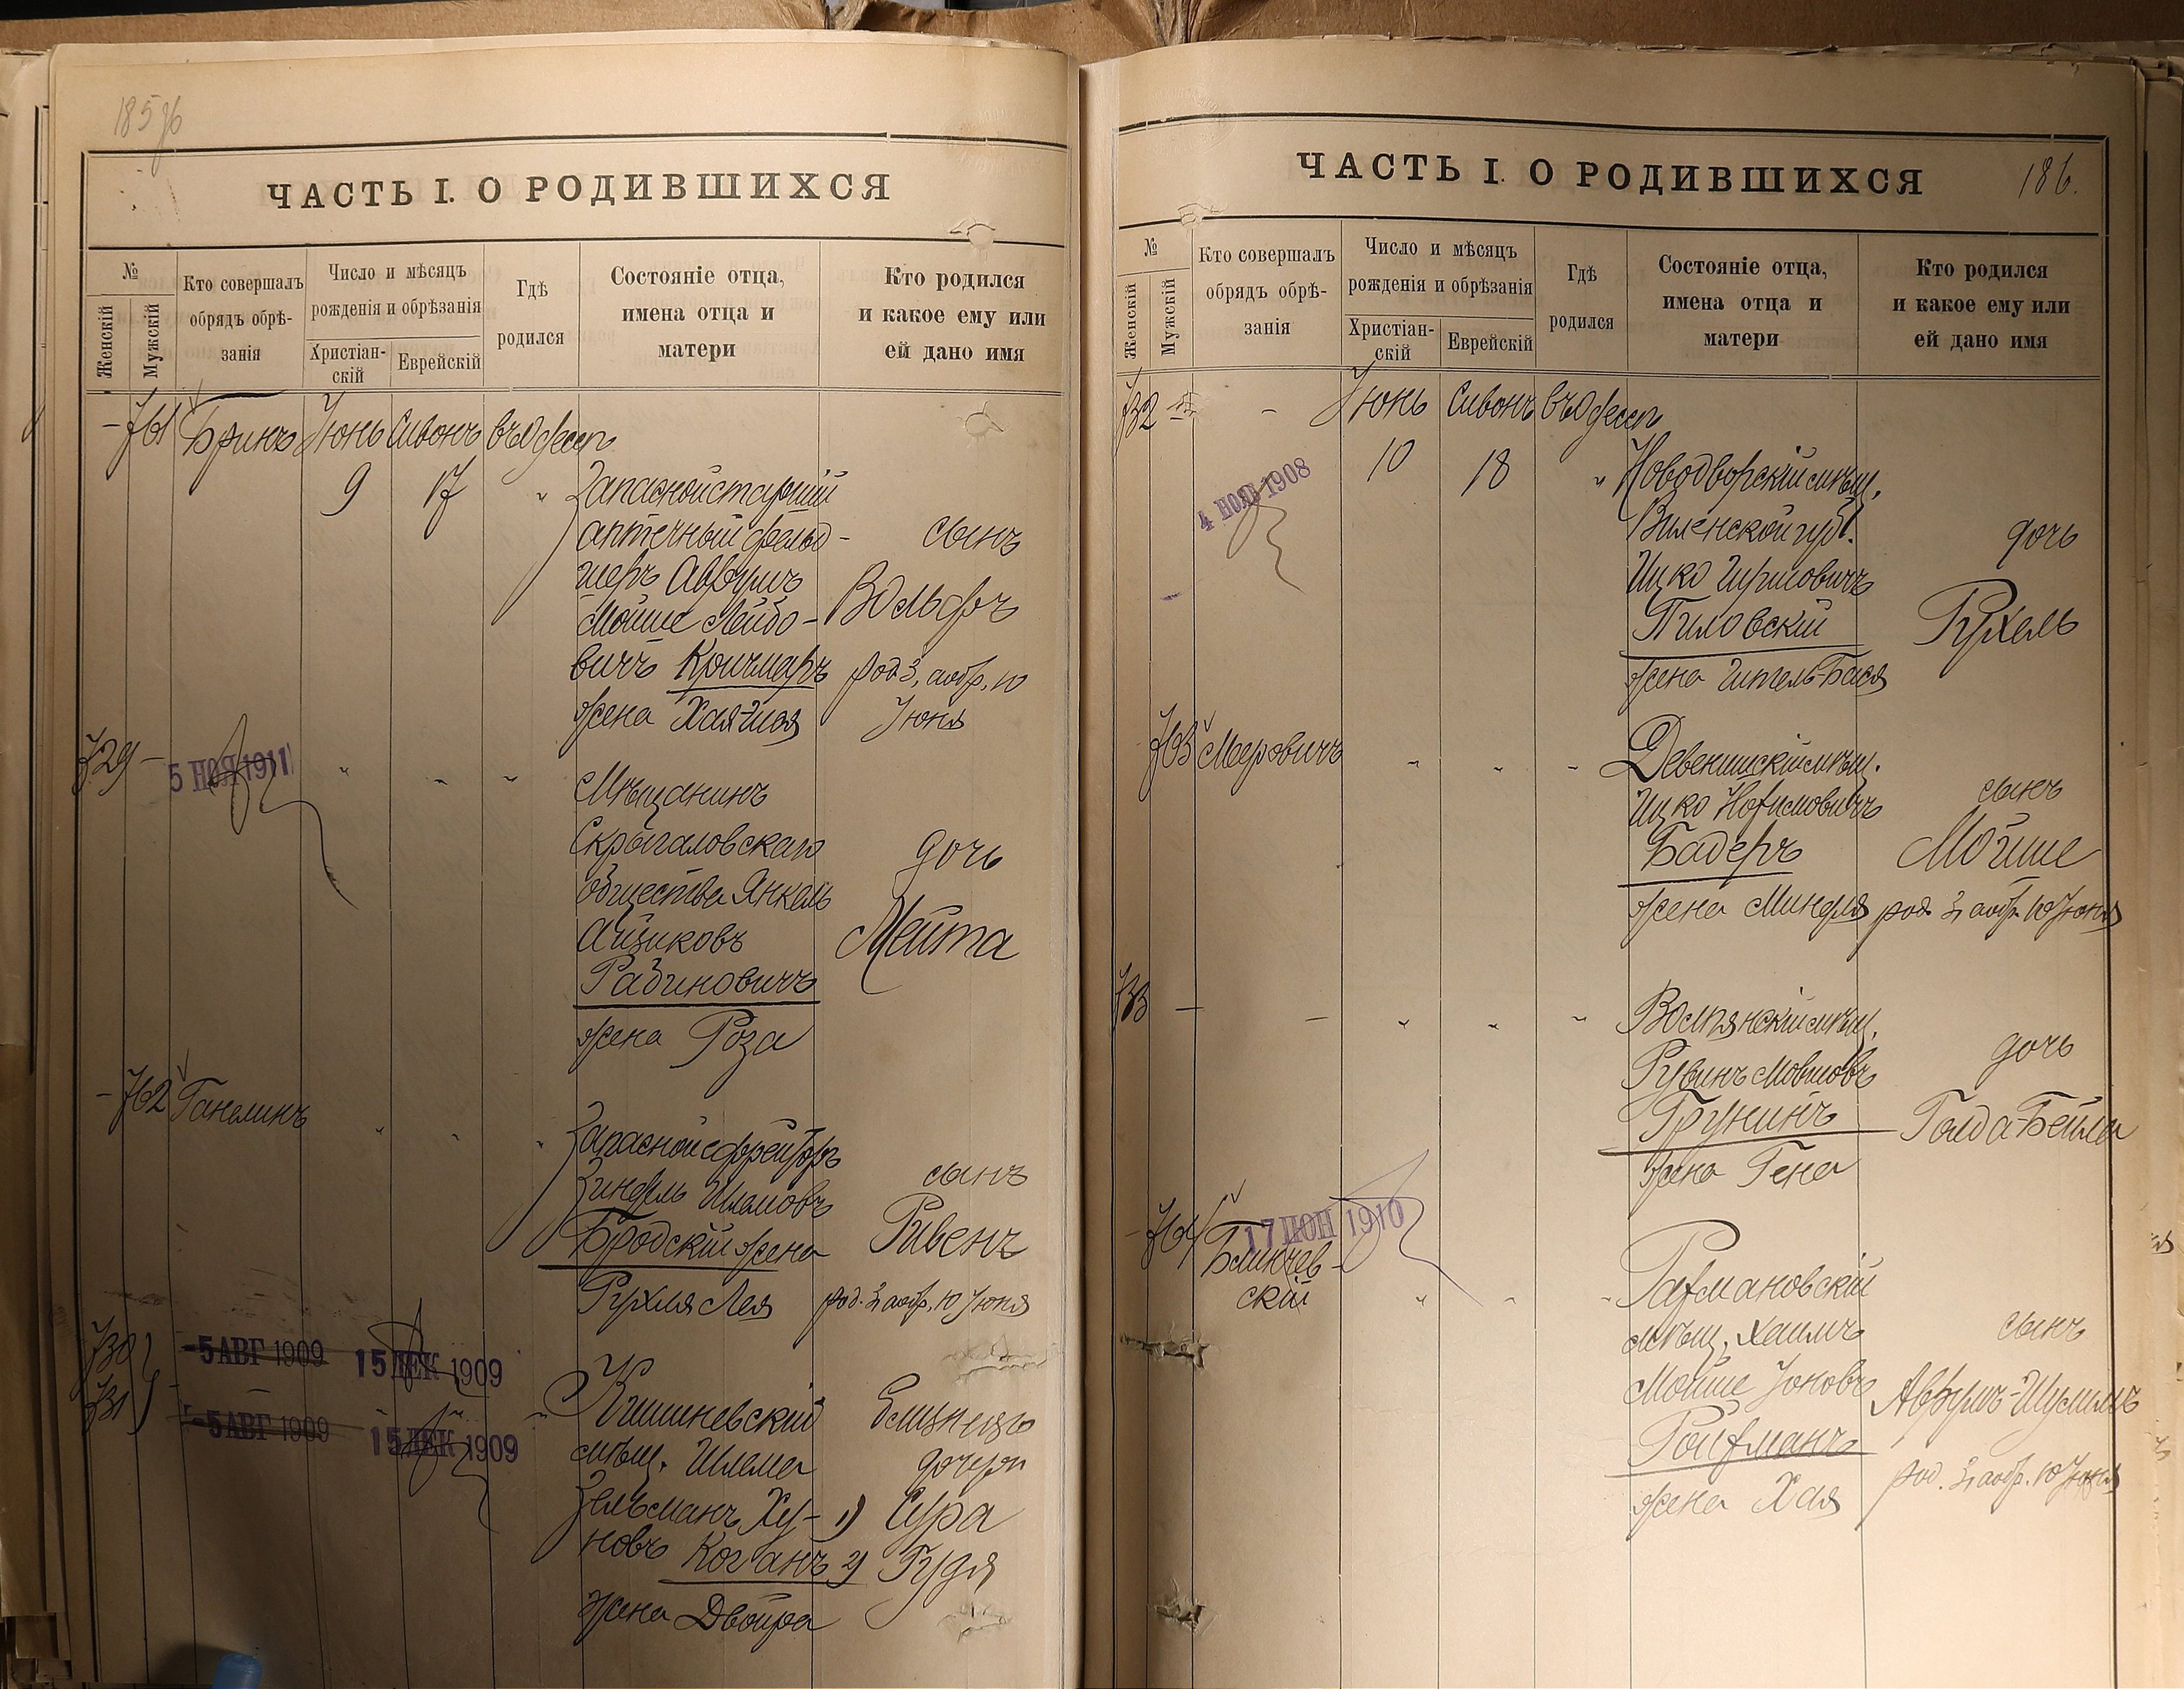 185 об
ЧАСТЬ I. О РОДИВШИХСЯ
№
Женскій
Мужскій
Кто совершалъ
обрядъ обрѣ-
занія
Число и мѣсяцъ
рожденія и обрѣзанія
Христіан-
скій
Еврейскій
Гдѣ
родился
Состояніе отца,
имена отца и
матери
Кто родился
и какое ему или
ей дано имя
- 761 Бринъ Іюнь Сивонъ въ Одессѣ
9 17 " Запасной старшій
аптечный фельд-
шеръ Аврумъ
Мойше Лейбо-
вичъ Кричмаръ
жена Хая-
сынъ
Вольфъ
род. 3, а обр. 10
Іюня
729 -
5 НОЯ 1911
" " "
Мѣщанинъ
Скрыгаловскаго
общества Янкель
Айзиковъ
Рабиновичъ
жена Роза
дочь
Мейта
- 762 Ганелинъ " " "
Запасной ефрейторъ
Зиндель Шлемовъ
Бродскій жена
Рухля Лея
сынъ
Ривенъ
род. 3, а обр. 10 Іюня
730
731
-5 АВГ 1909 15 ДЕК 1909
-5 АВГ 1909 15 ДЕК 1909
" " "
Кишиневскій
мѣщ. Шлема
Зельманъ Ху-
новъ Коганъ
жена Двойра
Близнецы
дочери
1) Сура
2) Гудя
186.
ЧАСТЬ I. О РОДИВШИХСЯ
№
Женскій
Мужскій
Кто совершалъ
обрядъ обрѣ-
занія
Число и мѣсяцъ
рожденія и обрѣзанія
Христіан-
скій
Еврейскій
Гдѣ
родился
Состояніе отца,
имена отца и
матери
Кто родился
и какое ему или
ей дано имя
732 - Іюнь Сивонъ въ Одессѣ
4 НОЯ 1908
10 18 " Новодворскій мѣщ.
Виленской губ.
Ицко Гиршовичъ
Пиловскій
жена Гитель-Бася
дочь
Рухель
763 Мееровичъ " " "
Девенишскій мѣщ.
Ицко Нохимовичъ
Бадеръ
жена Миндля
сынъ
Мойше
род. 3, а обр. 10 Іюня
733 - - " " "
Волпянскій мѣщ.
Рувинъ Мовшовъ
Грунинъ
жена Гена
дочь
Голда-Бейла
- 764 Блинчев-
скій
17 ІЮН 1910
" " "
Рахмановскій
мѣщ. Хаимъ
Мойше Іоновъ
Ройхманъ
жена Хая
сынъ
Аврумъ-Шулимъ
род. 3, а обр. 10 Іюня